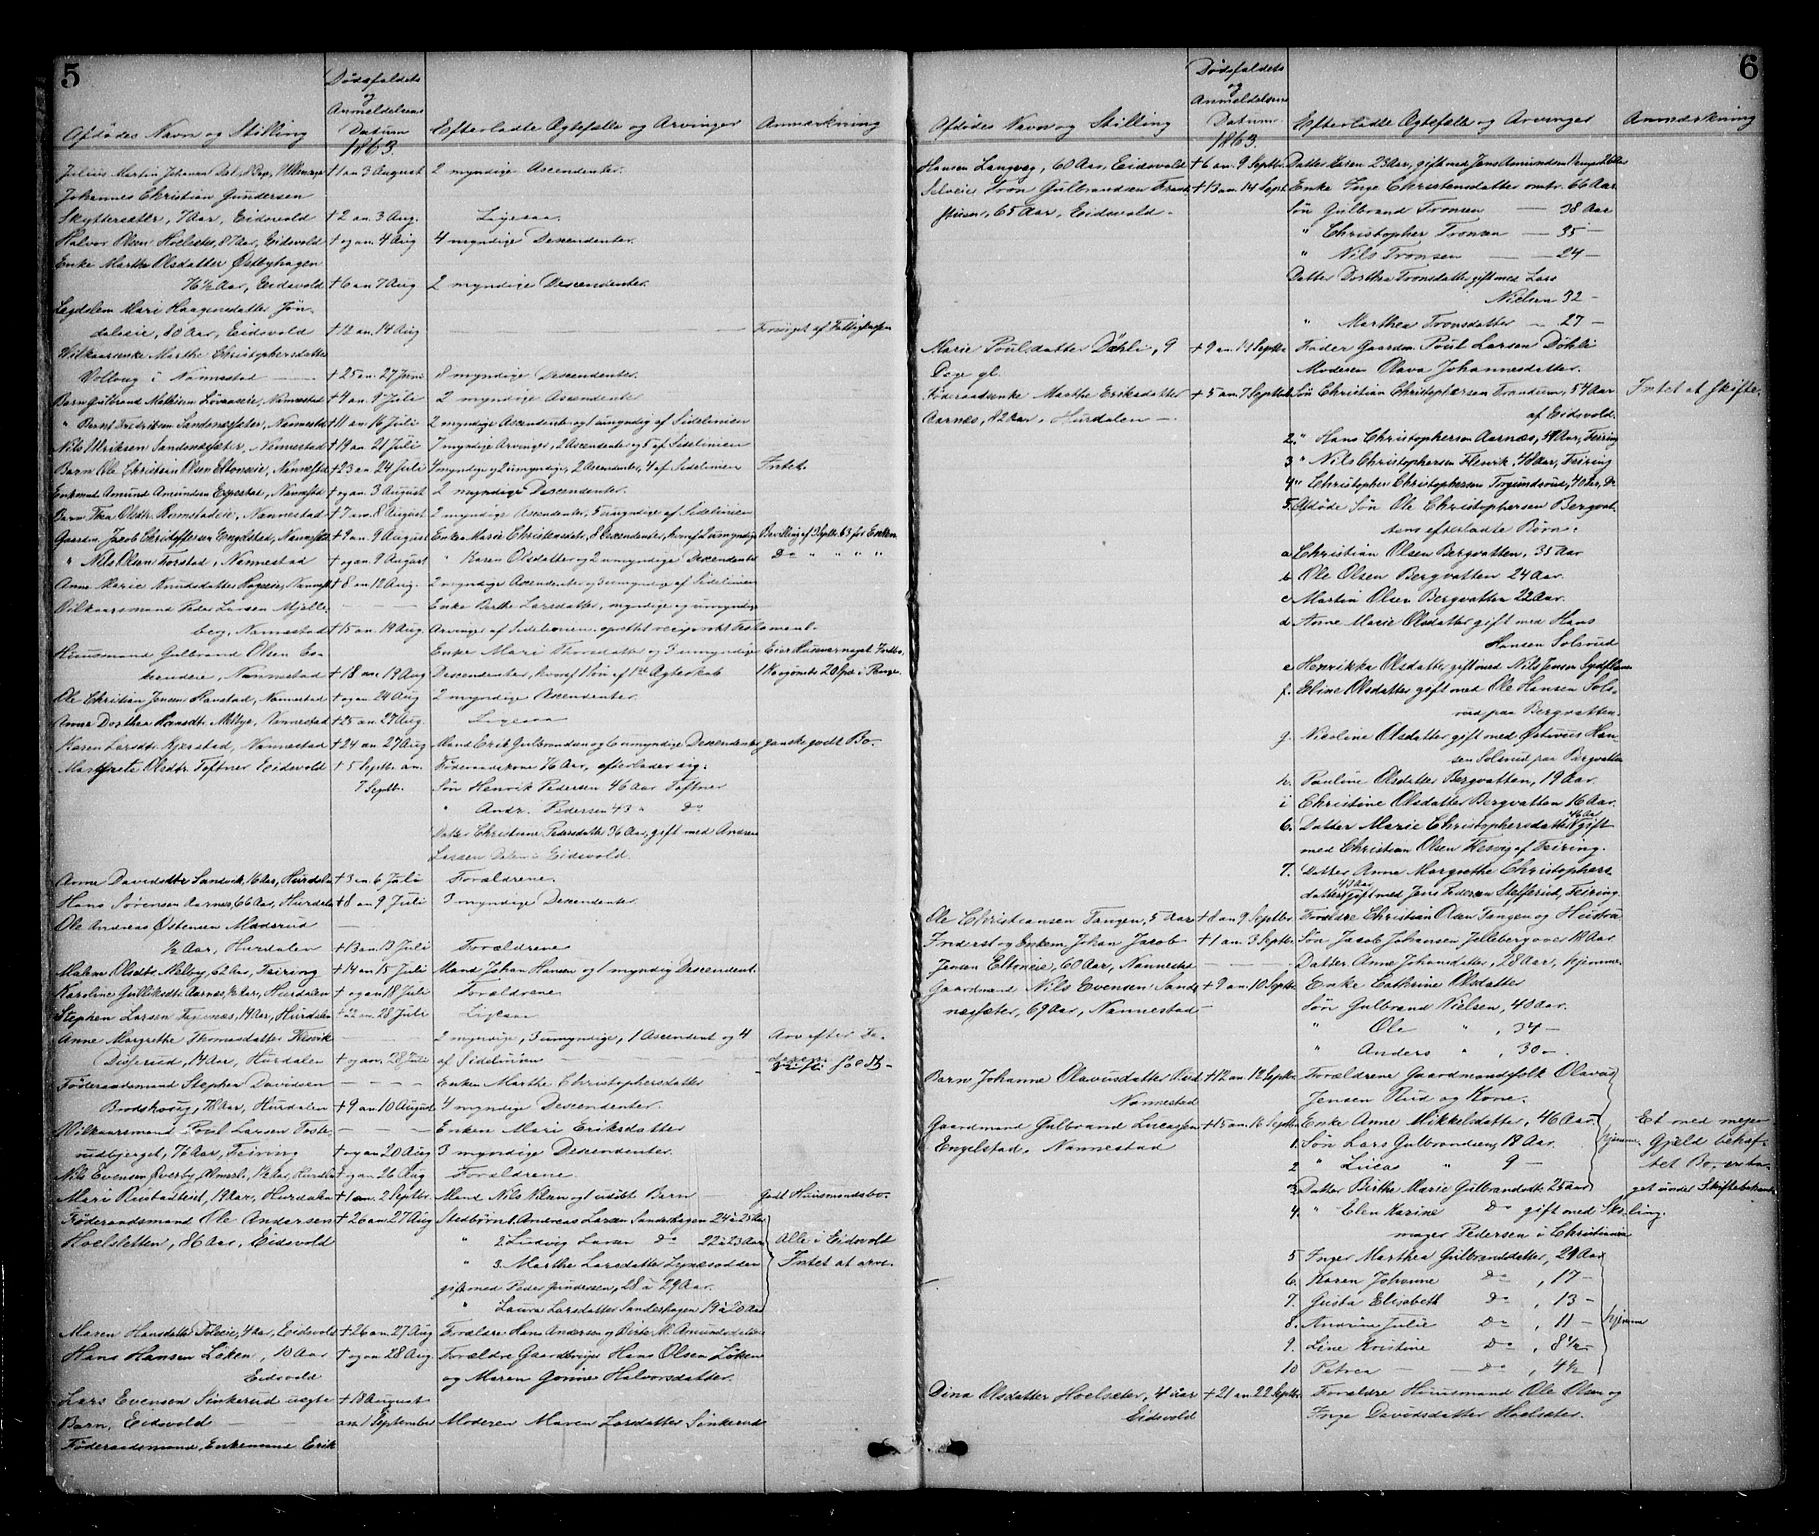 5
Afdødes Navn og Stilling
Dødsfaldets
og
Anmeldelsens
Datum
1863.
Efterladte Ægtefælle og Arvinger
Anmærkning
Julius Martin Johansen †1 an 3 August 2 myndige Ascendenter.
Johannes Christian Gundersen
Skyttersæter, 7 Aar, Eidsvold †2 an. 3 Aug. Ligesaa.
Halvor Olsen Hoelsæter, 87 Aar, Eidsvold † og an. 4 Aug 4 myndige Descendenter.
Enke Marthe Olsdatter Østbyhagen
76½ Aar, Eidsvold †6 an 7 Aug 2 myndige Descendenter.
Legdslem Mari Haagensdatter Jøn-
dalseie, 80 Aar, Eidsvold †12 an. 14 Aug Forsørget af Fattigkassen
Vilkaarsenke Marthe Christophersdatter
Vollaug i Nannestad †25 an. 27 Juni 8 myndige Descendenter.
Barn Gulbrand Mathisen Løvaaseie, Nannestad †4 an. 9 Juli 2 myndige Ascendenter
" Bernt Fredriksen Sandsnessæter, Nannestad †11 an 16 Juli 2 myndige Ascendenter og 1 umyndig af Sidelinien
Nils Ulriksen Sandsnessæter, Nannestad †19 an 21 Juli 7 myndige Arvinger, 2 Ascendenter og 5 af Sidelinien
Barn Ole Christian Olsen Eltoneie, Nannestad †23 an 24 Juli 4 myndige og 2 umyndige, 2 Ascendenter, 4 af Sidelinien Intet.
Enkemd Amund Amundsen Eggestad, Nannestd † og an. 3 August 2 myndige Descendenter.
Barn Thea Olsdtr. Remstadeie, Nannestad †7 an 8 August 2 myndige Ascendenter, 5 umyndige af Sidelinien
Gaardm. Jacob Christoffersen Engelstad, Nannestd †9 an. 9 August Enke Marie Christensdatr., 8 Descendenter, hvoraf 2 umyndige Bevilling af 3 Septbr. 63 for Enken
" Nils Olsen Torstad, Nannestad † og an 9 August " Karen Olsdatter og 2 umyndige Descendenter Do " " " "
Anne Marie Knudsdatter Hageeie, Nannestd †8 an 12 Aug. 2 myndige Ascendenter og 3 umyndig af Sidelinien
Vilkaarsmand Peder Larsen Mjelle-
berg, Nannestad †15 an. 19 Aug. Enke Berthe Larsdatter, myndige og umyndige
Arvinger af Sidelinien. oprettet reciprokt Testament.
Huusmand Gulbrand Olsen Es-
kendeie, Nannestad †18 an 19 Aug Enke Mari Thorsdatter og 3 umyndige
Descendenter, hvoraf 1 Søn af 1ste Ægteskab
Ole Christian Jensen Haustad, Nannestad † og an 24 Aug 2 myndige Ascendenter.
Anne Dorthea Hansdtr. Melbye, Nannestad †25 an. 27 Aug. Ligesaa
Karen Larsdtr. Kjerstad, Nannestad †24 an 27 Aug Mand Erik Gulbrandsen og 6 umyndige Descendenter ganske godt Bo.
Margrete Olsdtr. Toftner Eidsvold †5 Septbr. an.
7 Septbr. Føderaadskone 76 Aar, efterlader sig:
Søn Henrik Pedersen 46 Aar Toftner
" Andr. Pedersen 43 " Do
Datter Christiane Pedersdatter 36 Aar, gift med Andreas
Larsen Dalen i Eidsvold.
Anne Davidsdtr. Sandvik, 16 Aar, Hurdalen †3 an 6 Juli Forældrene.
Hans Sørensen Aarnes, 66 Aar, Hurdalen †8 an 9 Juli 3 myndige Descendenter.
Ole Andreas Østensen Madsrud
½ Aar, Hurdalen †13 an. 13 Juli Forældrene
Malene Olsdtr. Melby, 62 Aar, Feiring †14 an 15 Juli Mand Johan Hansen og 1 myndig Descendent.
Karoline Gulliksdtr. Aarnæs, ½ Aar, Hurdalen † og an 18 Juli Forældrene.
Stephen Larsen, 14 Aar, Hurdalen †22 an. 28 Juli Ligesaa
Anne Margrethe Thomasdatter Hesvik
Duferud, 14 Aar, Hurdalen † og an. 28 Juli 2 myndige, 3 umyndige, 1 Ascendent og 4
af Sidelinien Arv efter Fa-
deren
Føderaadsmand Stephen Davidsen
Brodskoug, 78 Aar, Hurdalen †9 an. 10 August Enken Marthe Christophersdatter
4 myndige Descendenter.
Vilkaarsmand Poul Larsen Toste-
rudbjerget, 76 Aar, Feiring † og an 20 Aug Enken Mari Eriksdatter
3 myndige Descendenter.
Nils Evensen Øverby Almsæt., ½ Aar, Hurdalen † og an 26 Aug Forældrene
Mari Rustadeiet, 19 Aar, Hurdalen †1 an. 2 Septbr. Mand Nils Nilsen og 1 udøbt Barn godt Huusmandsbo.
Føderaadsmand Ole Andersen
Hoelsletten, 86 Aar, Eidsvold †26 an 27 Aug Stedbørn 1. Andreas Larsen Sanderhagen 24 à 25 Aar
" 2. Ludvig Larsen Do 22 à 23 Aar Alle i Eidsvold
" 3. Marthe Larsdatter Lynæsodden Intet at arve.
gift med Peder Gundersen, 28 à 29 Aar.
" Laura Larsdatter Sanderhagen 19 à 20 Aar
Maren Hansdatter Toldeie, 4 Aar, Eidsvold †26 an. 27 Aug Forældre Hans Andersen og Birte M. Amundsdatter
Hans Hansen Løken, 10 Aar
Eidsvold † og an 28 Aug. Forældre Gaardbruger Hans Olsen Løken
og Maren Gorine Halvorsdatter.
Lars Evensen Sinkerud uægte
Barn, Eidsvold †18 August
an 1 September Moderen Maren Larsdatter Sinkerud
Føderaadsmand, Enkemand Erik
6
Afdødes Navn og Stilling
Dødsfaldets
og
Anmeldelsens
Datum
1863.
Efterladte Ægtefælle og Arvinger
Anmærkning
Hansen Langvag, 60 Aar, Eidsvold †6 an. 9 Septbr. Datter Karen 23 Aar, gift med Jens Amundsen
Selveier Tron Gulbrandsen Trøst-
huser, 65 Aar, Eidsvold †13 an. 14 Sept. Enke Inge Christensdatter omtr. 66 Aar
Søn Gulbrand Tronsen — 38 Aar
" Christopher Tronsen — 35 —
" Nils Tronsen — 24 —
Datter Dorthea Tronsdatter gift med Lars
Nielsen 32 —
" Marthea Tronsdatter — 27 —
Marie Poulsdatter Døhli, 9
Dage gl. †9 an. 11 Septbr Fader Gaardm. Poul Larsen Döhli
Moderen Olava Johannesdatter.
Føderaadsenke Marthe Eriksdatter
Aarnæs, 82 Aar, Hurdalen †5 an. 7 Septbr Søn Christian Christophersen Trandum, 54 Aar Intet at skifte.
af Eidsvold.
2. " Hans Christophersen Aarnæs, 49 Aar, Feiring
3 " Nils Christophersen Flesvik, 48 Aar, Feiring
4 " Christopher Christophersen Torgundsrud, 40 Aar, Do
5. Afdøde Søn Ole Christophersen Bergvat-
tens efterladte Børn:
a Christian Olsen Bergvatten, 35 Aar
b Ole Olsen Bergvatten 24 Aar.
c Martin Olsen Bergvatten 22 Aar.
d Anne Marie Olsdatter gift med Hans
Hansen Solsrud
e Henrikka Olsdatter, gift med Nils Jensen
f. Eline Olsdatter gift med Ole Hansen Sols-
rud paa Bergvatten.
g. Nicoline Olsdatter gift med Østenius Han-
sen Solsrud paa Bergvatten
h. Pauline Olsdatter Bergvatten, 19 Aar.
i Christine Olsdatter Bergvatten 16 Aar.
6. Datter Marie Christophersdatter 46 Aar gift
med Christian Olsen Hesvig af Feiring.
7. Datter Anne Margrethe Christophers-
datter 43 Aar gift med Jens Pedersen Stefferud, Feiring.
Ole Christiansen Tangen, 5 Aar †8 an 9 Septbr. Forældre Christian Olsen Tangen og Hustru
Inderst og Enkem. Johan Jacob
Jensen Eltoneie, 60 Aar, Nannestad †1 an. 3 Septbr. Søn Jacob Johansen Jelleberg over 18 Aar
Datter Anne Johansdatter, 28 Aar, hjemme.
Gaardmand Nils Evensen Sands-
nessæter, 69 Aar, Nannestad †9 an. 10 Septbr Enke Cathrine Olsdatter
Søn Gulbrand Nielsen, 40 Aar.
" Ole " , 34 —
" Anders " , 30 —
Barn Johanne Olavusdatter Rud
Nannestad †12 an. 12 Septbr Forældrene Gaardmandsfolk Olavus
Jensen Rud og Kone.
Gaardmand Gulbrand Lucassen
Engelstad, Nannestad †15 an. 16 Septbr Enke Anne Mikkelsdatter, 46 Aar
1. Søn Lars Gulbrandsen, 18 Aar. hjemme.
2 " Lucas " 9 —
3. Datter Birthe Marie Gulbrandsdtr. 25 Aar
4. " Elen Karine Do gift med Sko-
mager Pedersen i Christiania
5 Inger Marthea Gulbrandsdatter, 21 Aar
6. Karen Johanne Do , 17 —
7. Gusta Elisabeth Do , 13 —
8. Andrine Julie Do , 11 — hjemme
9. Line Kristine Do , 8½ —
10 Petrea — Do , 4½
Et med megen
Gjæld behæf-
tet Bo, er ta-
get under Skiftebehand-
ling.
Dina Olsdatter Hoelsæter, 4 Aar
Eidsvold †21 an. 22 Septbr Forældre Huusmand Ole Olsen og
Inge Davidsdatter Hoelsæter.